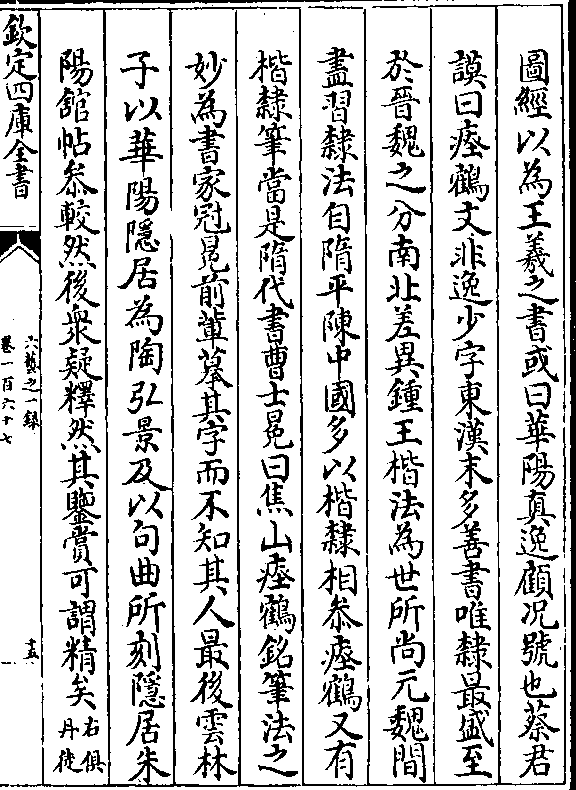 圖經以為王羲之書或曰華陽真逸顧况號也蔡君
謨曰瘞鶴文非逸少字東漢末多善書唯隸最盛至
於晉魏之分南北差異鍾王楷法為世所尚元魏間
盡習隸法自隋平陳中國多以楷隸相叅瘞鶴又有
楷隸筆當是隋代書曹士冕曰焦山瘞鶴銘筆法之
妙為書家冠冕前輩摹其字而不知其人最後雲林
子以華陽隱居為陶弘景及以句曲所刻隱居朱
陽舘帖叅較然後衆疑釋然其鑒賞可謂精矣右俱
丹徒
欽定四庫全書
六藝之一錄
卷一百六十七